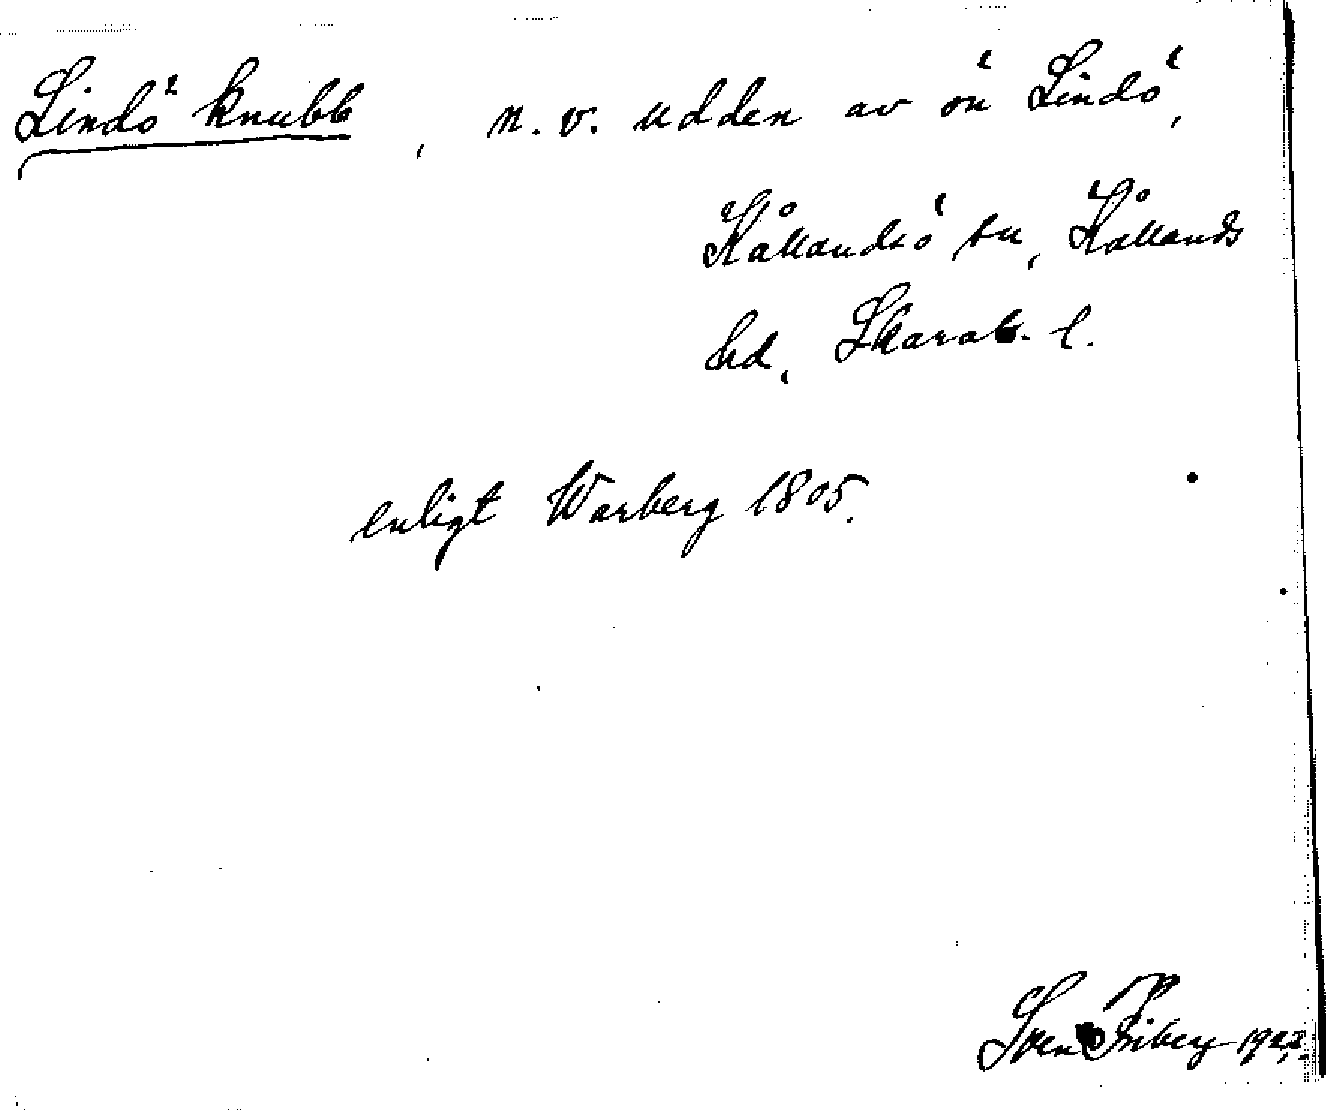 Lindö knubb, n. v. udden av ön Lindö,
Kållandsö sn, Kållands
hd, Skarab. l.
enligt Warberg 1805.
Sven Friberg 1922.